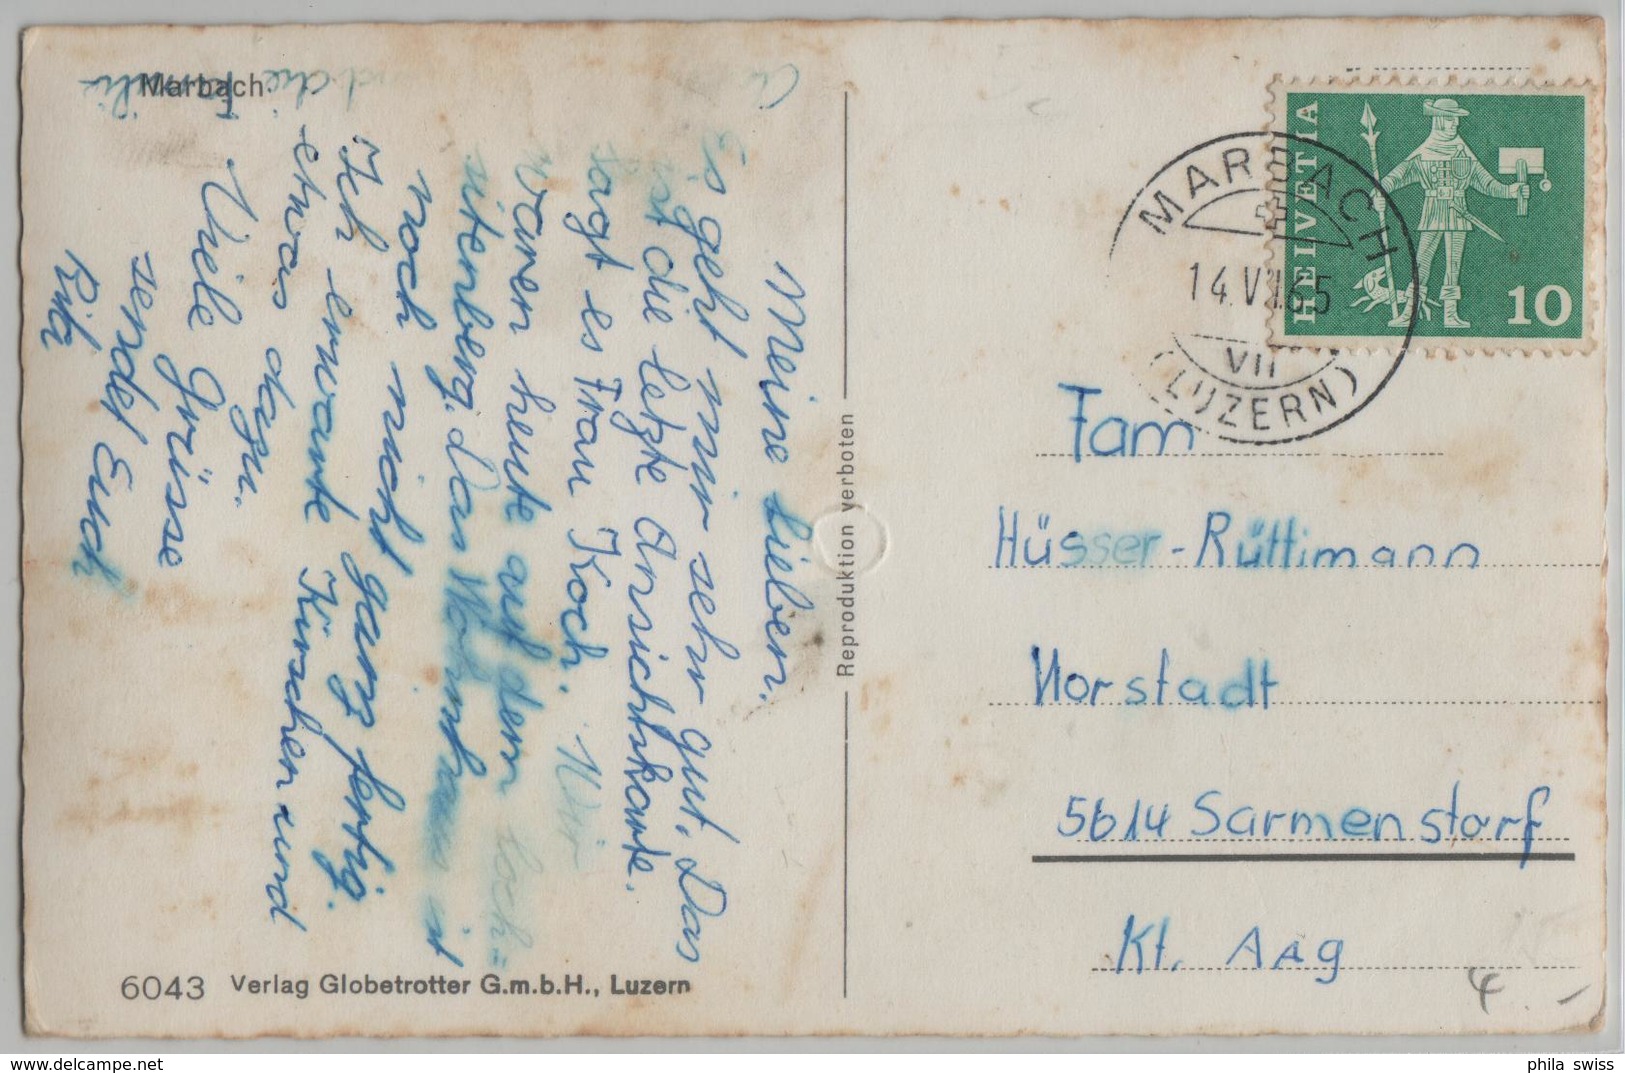 Marbach
Meine Lieben.
Es geht mir sehr gut. Das
ist die letzte Ansichtskarte.
sagt es Frau Koch. Wir
waren heute auf dem Loch=
sitenberg. Das Wohnhaus ist
noch nicht ganz fertig.
Ich erwarte Kirschen und
etwas dazu.
Viele Grüsse
sendet Euch
Rita
6043 Verlag Globetrotter G.m.b.H., Luzern
Reproduktion verboten
HELVETIA
10
MARBACH
14.VI.65
VII
(LUZERN)
Fam
Hüsser-Rüttimann
Vorstadt
5614 Sarmenstorf
Kt. Aag
4.-
phila swiss
www.delcampe.net